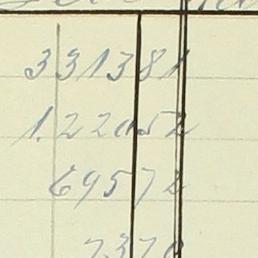 331381
1.22052
69572
7370